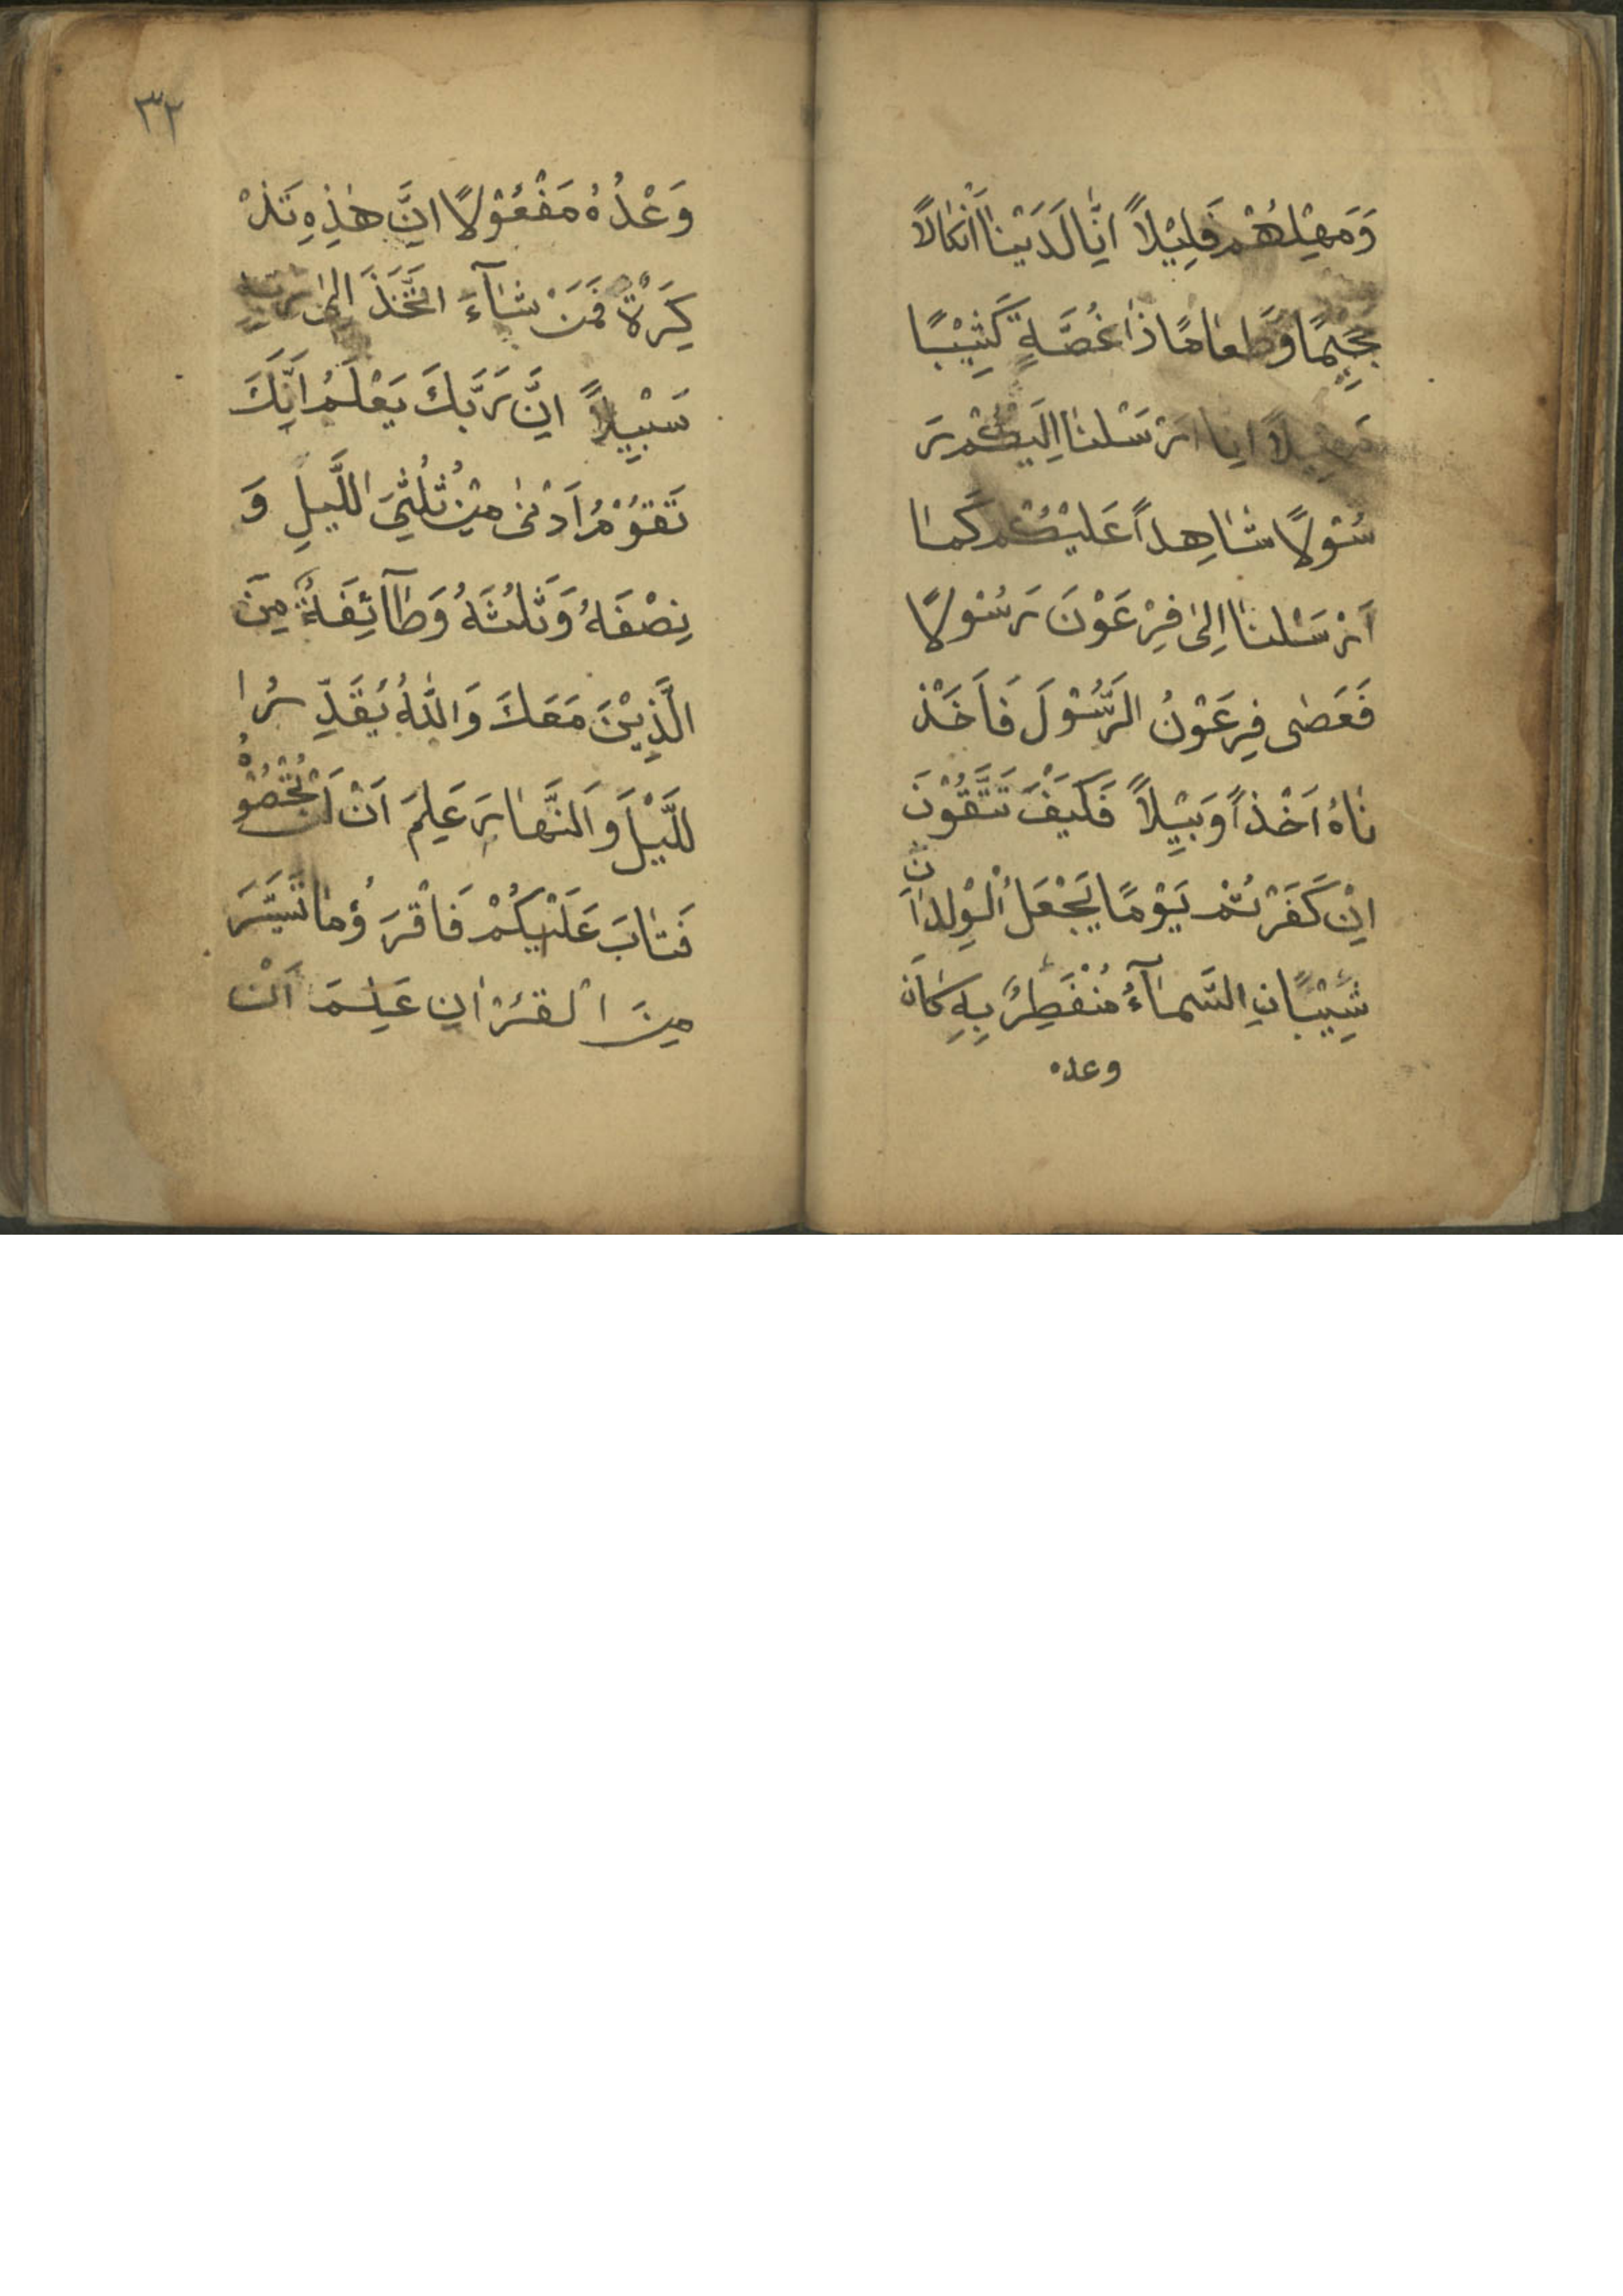 وَمَهِّلْهُمْ قَلِيْلاً اِنَّا لَدَيْنَا اَنْكَالاً
جَحِيْمًا وَّطَعَامًا ذَا غُصَّةٍ كَثِيْبًا
مَهِيْلاً اِنَّا اَرْسَلْنَا اِلَيْكُمْ رَ
سُوْلاً شَاهِداً عَلَيْكُمْ كَمَا
اَرْسَلْنَا اِلٰى فِرْعَوْنَ رَسُوْلاً
فَعَصٰى فِرْعَوْنُ الرَّسُوْلَ فَاَخَذْ
نَاهُ اَخْذاً وَبِيْلاً فَكَيْفَ تَتَّقُوْنَ
اِنْ كَفَرْتُمْ يَوْمًا يَجْعَلُ الْوِلْدَانَ
شِيْبًانِ السَّمَآءُ مُنْفَطِرٌ بِهِ كَانَ
وعده
٣٢
وَعْدُهُ مَفْعُوْلاً اِنَّ هٰذِهِ تَذْ
كِرَةٌ فَمَنْ شَآءَ اتَّخَذَ اِلٰى رَبِّهِ
سَبِيْلاً اِنَّ رَبَّكَ يَعْلَمُ اَنَّكَ
تَقُوْمُ اَدْنٰى مِنْ ثُلُثَيِ اللَّيْلِ وَ
نِصْفَهُ وَثُلُثَهُ وَطَآئِفَةٌ مِنَ
الَّذِيْنَ مَعَكَ وَاللّٰهُ يُقَدِّرُ ا
للَّيْلَ وَالنَّهَارَ عَلِمَ اَنْ لَنْ تُحْصُوْهُ
فَتَابَ عَلَيْكُمْ فَاقْرَؤُ مَا تَيَسَّرَ
مِنَ الْقُرْاٰنِ عَلِمَ اَنْ